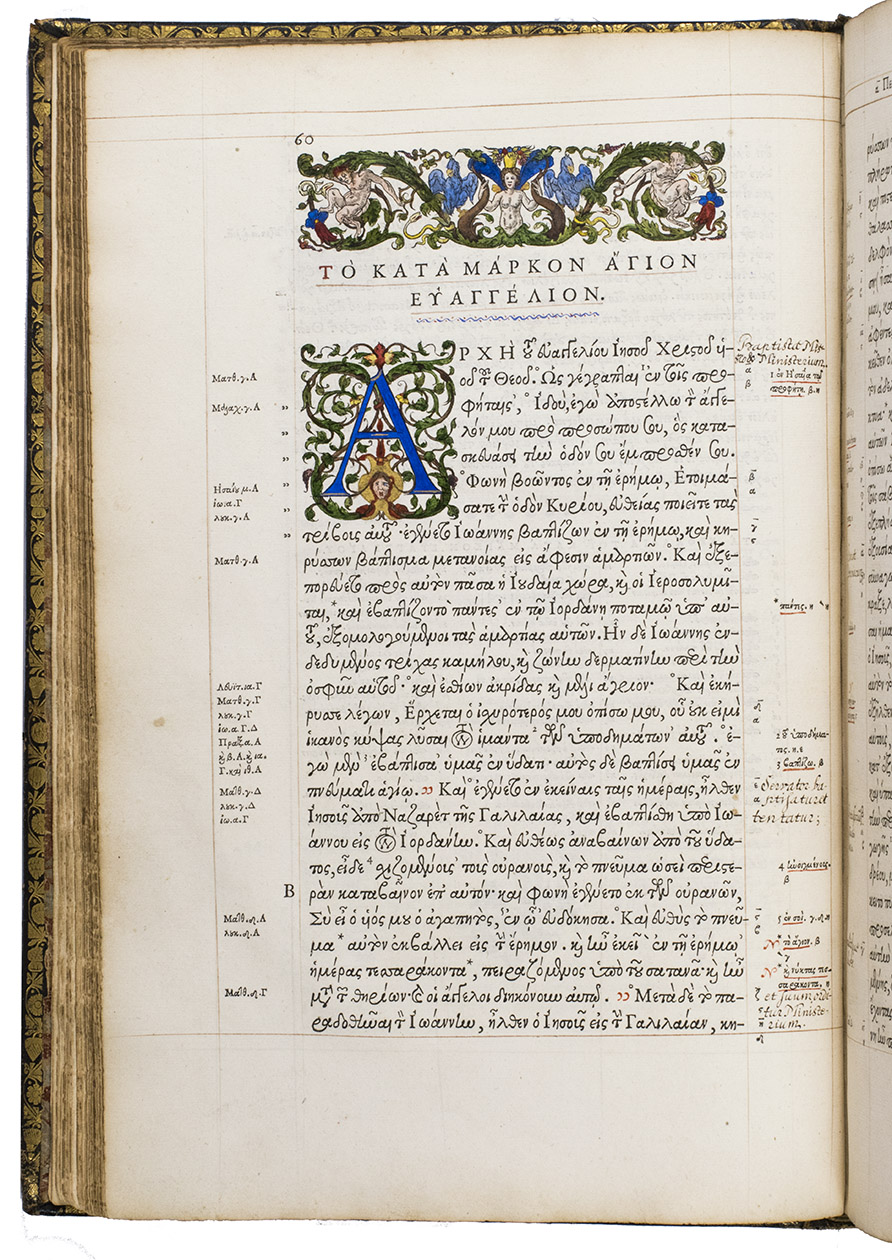 60
ΤῸ ΚΑΤᾺ ΜΆΡΚΟΝ ἍΓΙΟΝ
ΕΥ̓ΑΓΓΈΛΙΟΝ.
ΑΡΧῊ τοῦ εὐαγγελίου Ἰησοῦ Χριστοῦ υἱ-
οῦ τοῦ Θεοῦ. Ὡς γέγραπται ἐν τοῖς προ-
φήταις, Ἰδοὺ, ἐγὼ ἀποστέλλω τὸν ἄγγε-
λόν μου πρὸ προσώπου σου, ὃς κατα-
σκευάσει τὴν ὁδόν σου ἔμπροσθέν σου.
Φωνὴ βοῶντος ἐν τῇ ἐρήμῳ, Ἑτοιμά-
σατε τὴν ὁδὸν Κυρίου, εὐθείας ποιεῖτε τὰς
τρίβους αὐτοῦ· ἐγένετο Ἰωάννης βαπτίζων ἐν τῇ ἐρήμῳ, καὶ κη-
ρύσσων βάπτισμα μετανοίας εἰς ἄφεσιν ἁμαρτιῶν. Καὶ ἐξε-
πορεύετο πρὸς αὐτὸν πᾶσα ἡ Ἰουδαία χώρα, καὶ οἱ Ἱεροσολυμῖ-
ται, *καὶ ἐβαπτίζοντο πάντες ἐν τῷ Ἰορδάνῃ ποταμῷ ὑπ' αὐ-
τοῦ, ἐξομολογούμενοι τὰς ἁμαρτίας αὐτῶν. Ἦν δὲ Ἰωάννης ἐν-
δεδυμένος τρίχας καμήλου, καὶ ζώνην δερματίνην περὶ τὴν
ὀσφὺν αὐτοῦ· καὶ ἐσθίων ἀκρίδας καὶ μέλι ἄγριον· Καὶ ἐκή-
ρυσσε λέγων, Ἔρχεται ὁ ἰσχυρότερός μου ὀπίσω μου, οὗ οὐκ εἰμὶ
ἱκανὸς κύψας λῦσαι τὸν ἱμάντα ²τῶν ὑποδημάτων αὐτοῦ. ἐ-
γὼ μὲν ³ἐβάπτισα ὑμᾶς ἐν ὕδατι· αὐτὸς δὲ βαπτίσει ὑμᾶς ἐν
πνεύματι ἁγίῳ. Καὶ ἐγένετο ἐν ἐκείναις ταῖς ἡμέραις, ἦλθεν
Ἰησοῦς ἀπὸ Ναζαρὲτ τῆς Γαλιλαίας, καὶ ἐβαπτίσθη ὑπὸ Ἰω-
άννου εἰς τὸν Ἰορδάνην. Καὶ εὐθέως ἀναβαίνων ἀπὸ τοῦ ὕδα-
τος, εἶδε ⁴σχιζομένους τοὺς οὐρανοὺς, καὶ τὸ πνεῦμα ὡσεὶ περιστε-
Β
ρὰν καταβαῖνον ἐπ' αὐτόν· καὶ φωνὴ ἐγένετο ἐκ τῶν οὐρανῶν,
Σὺ εἶ ὁ υἱός μου ὁ ἀγαπητὸς, ἐν ᾧ εὐδόκησα. Καὶ εὐθὺς τὸ πνεῦ-
μα* αὐτὸν ἐκβάλλει εἰς τὴν ἔρημον. καὶ ἦν ἐκεῖ ἐν τῇ ἐρήμῳ
ἡμέρας τεσσαράκοντα*, πειραζόμενος ὑπὸ τοῦ σατανᾶ· καὶ ἦν
μετὰ τῶν θηρίων· καὶ οἱ ἄγγελοι διηκόνουν αὐτῷ. Μετὰ δὲ τὸ πα-
ραδοθῆναι τὸν Ἰωάννην, ἦλθεν ὁ Ἰησοῦς εἰς τὴν Γαλιλαίαν, κη-
Ματθ.γ.Α
Μαλαχ.γ.Α
Ησαΐου μ.Α
ἰω.α.Γ
λυκ.γ.Α
Ματθ.γ.Α
Λευϊτ.ια.Γ
Ματθ.γ.Γ
λυκ.γ.Γ
ἰω.α.Γ.Δ
Πραξ.α.Α
Ματθ.γ.Δ
λυκ.γ.Δ
ἰω.α.Γ
Ματθ.δ.Α
λυκ.δ.Α
Ματθ.δ.Γ
Baptistæ Mi-
Ministerium.
1 ἐν Ησαΐᾳ τῷ
προφήτῃ. β.
*πάντες.
2 τοῦ ὑποδήμα-
τος.
3 βαπτίζω. β
Servator ba-
ptisatur et
tentatur;
4 ἠνοιγμένους.
β
5 ἐν σοί.
*τὸ ἅγιον. β
*καὶ νύκτας τεσ-
σαράκοντα.
et suum ordi-
tur Ministe-
rium.